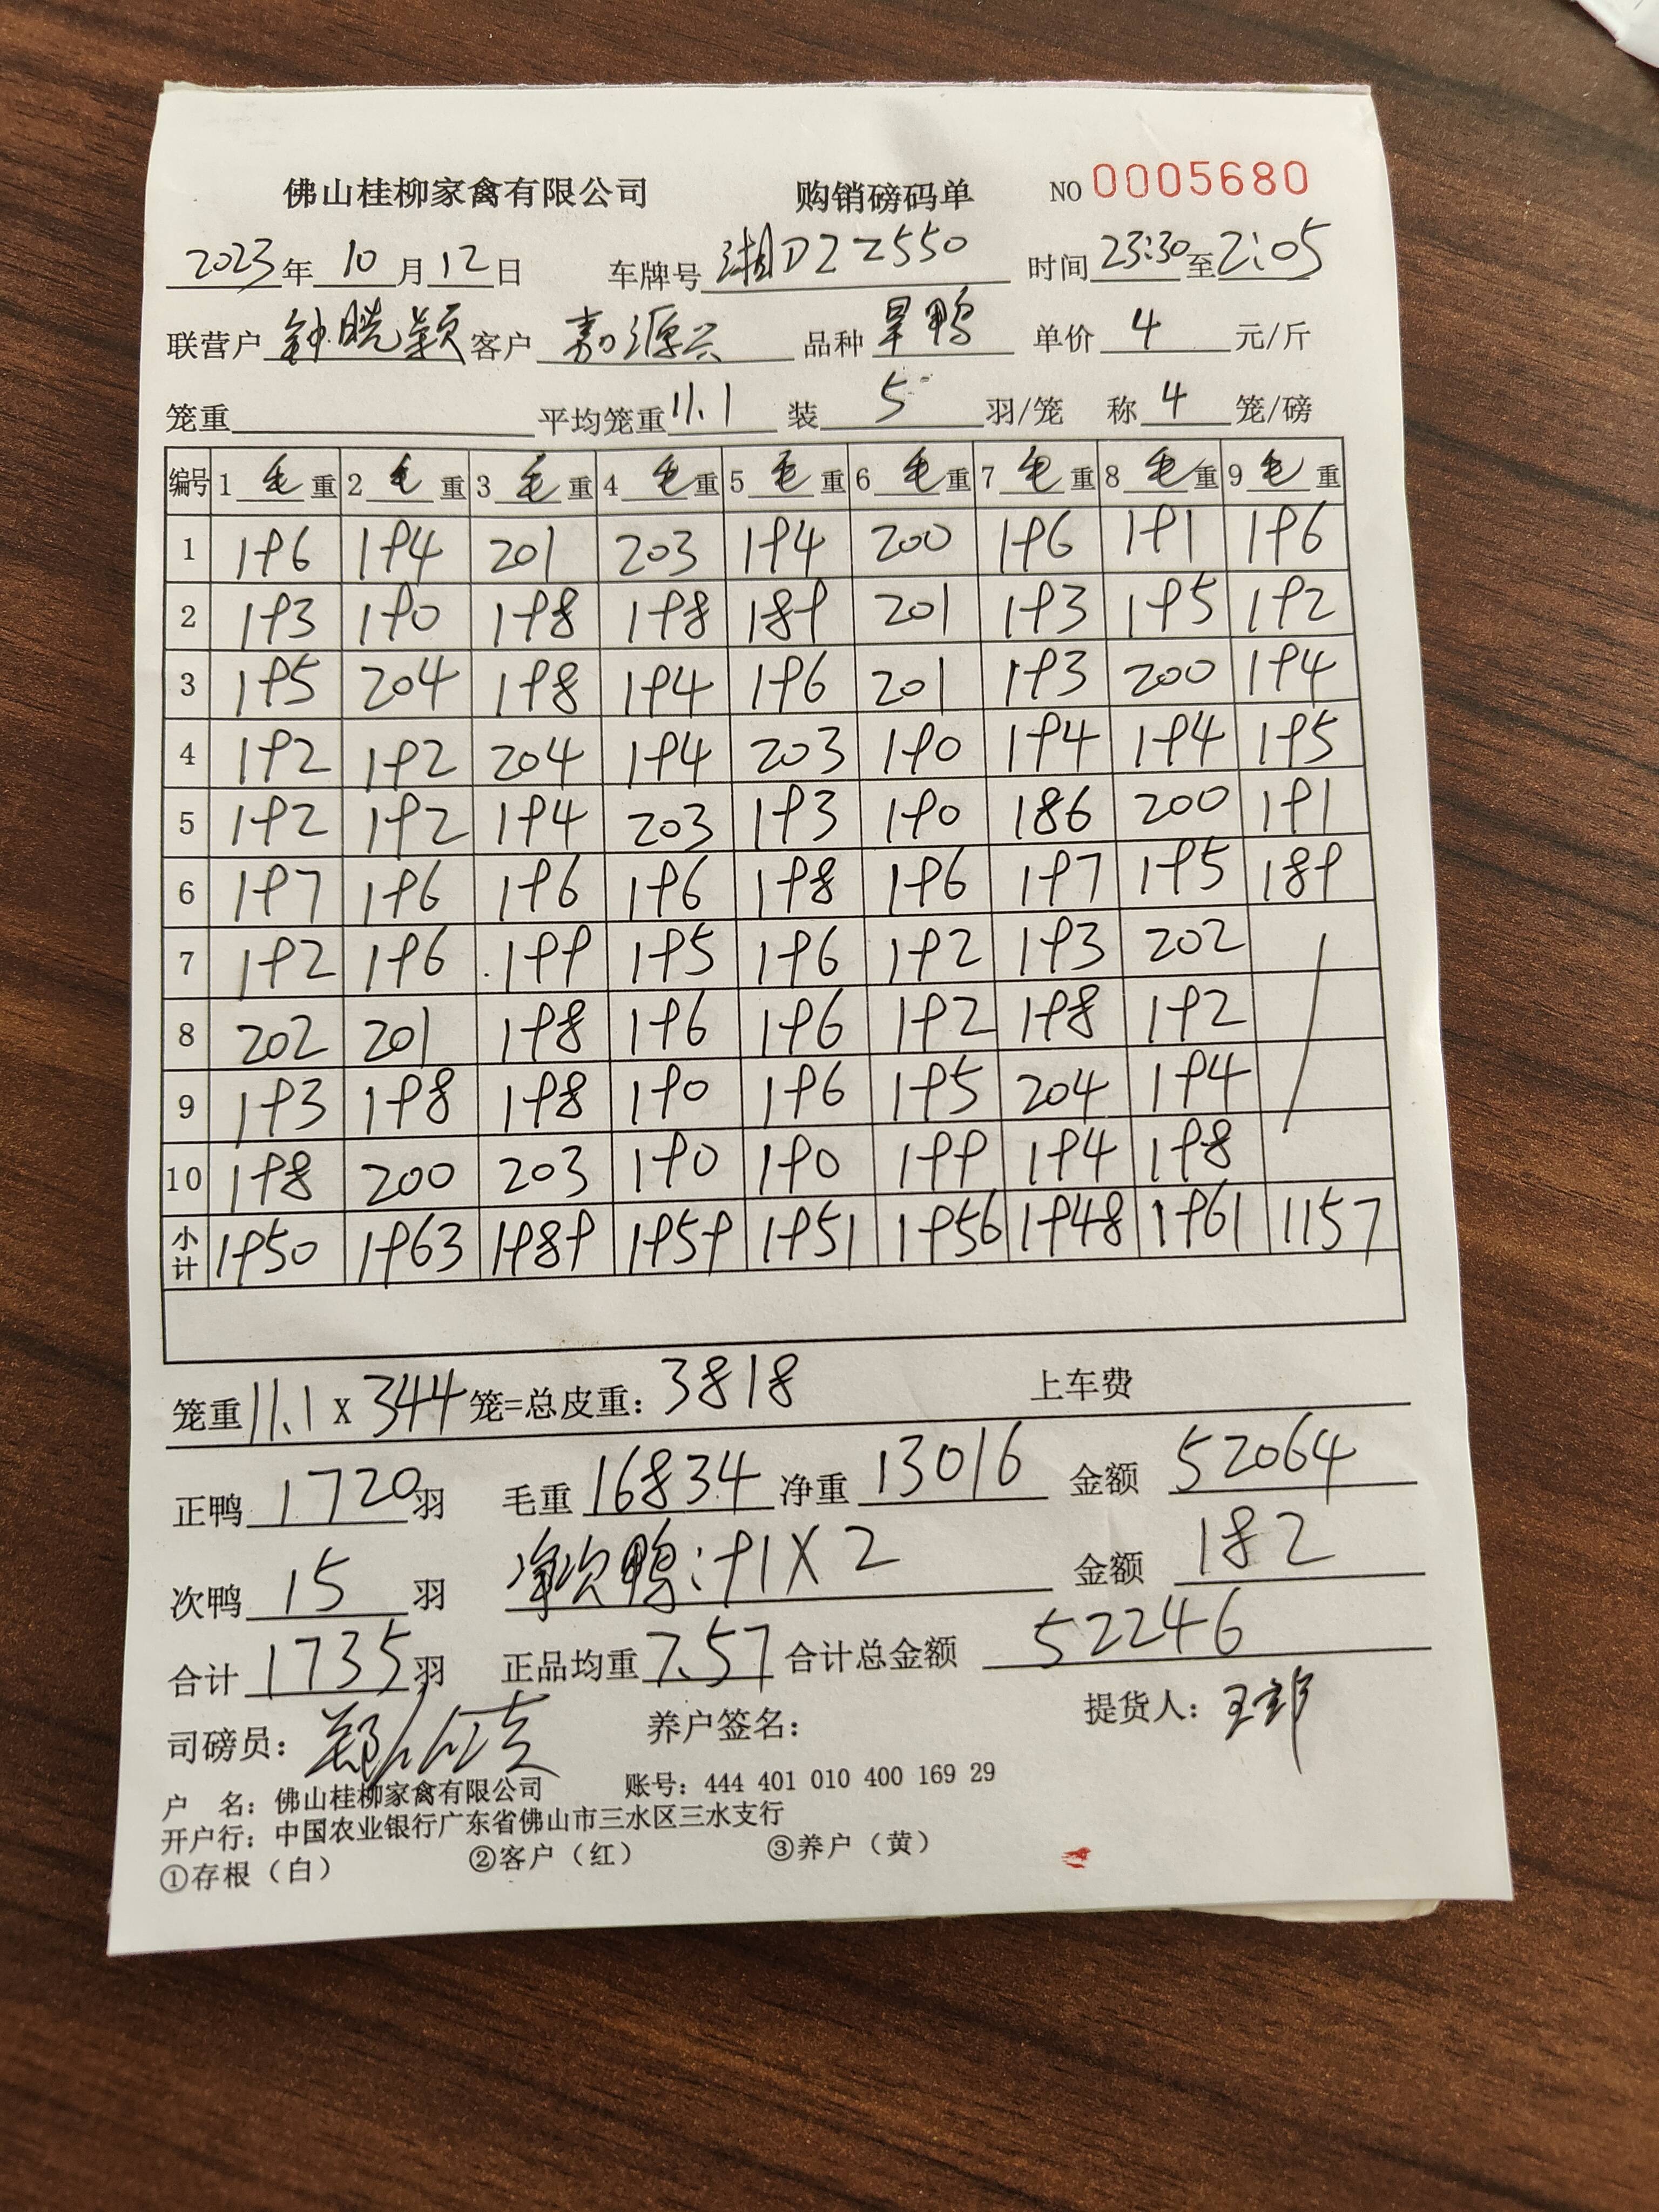 佛山桂柳家禽有限公司 购销磅码单 NO 0005680
2023年 10 月 12 日 车牌号 湘DZZ550 时间 23:30 至 2:05
联营户 钟晓颖 客户 嘉源兴 品种 旱鸭 单价 4 元/斤
笼重 平均笼重 11.1 装 5 羽/笼 称 4 笼/磅
编号 1 毛重 2 毛重 3 毛重 4 毛重 5 毛重 6 毛重 7 毛重 8 毛重 9 毛重
1 196 194 201 203 194 200 196 191 196
2 193 190 198 198 189 201 193 195 192
3 195 204 198 194 196 201 193 200 194
4 192 192 204 194 203 190 194 194 195
5 192 192 194 203 193 190 186 200 191
6 197 196 196 196 198 196 197 195 189
7 192 196 199 195 196 192 193 202
8 202 201 198 196 196 192 198 192
9 193 198 198 190 196 195 204 194
10 198 200 203 190 190 199 194 198
小计 1950 1963 1989 1959 1951 1956 1948 1961 1157
笼重 11.1 X 344 笼=总皮重: 3818 上车费
正鸭 1720 羽 毛重 16834 净重 13016 金额 52064
次鸭 15 羽 净次鸭:91X2 金额 182
合计 1735 羽 正品均重 7.57 合计总金额 52246
司磅员: 养户签名: 提货人:
户 名: 佛山桂柳家禽有限公司 账号: 444 401 010 400 169 29
开户行: 中国农业银行广东省佛山市三水区三水支行
①存根（白） ②客户（红） ③养户（黄）